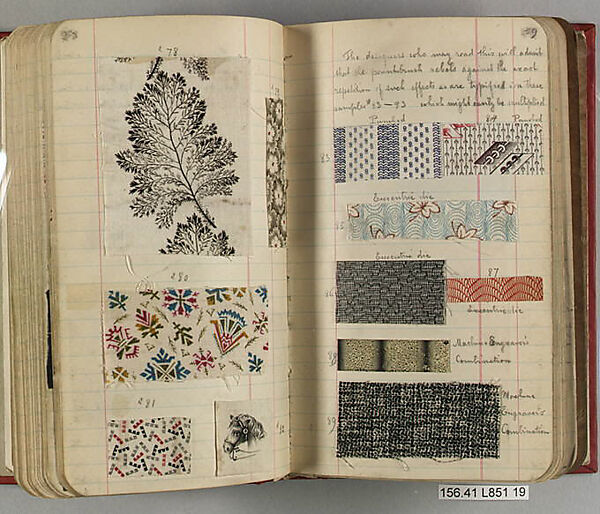 78
80
81
The designers who may read this will admit
that the paintbrush rebels against the exact
repetition of such effects as are typified in these
samples 83–93 which might easily be multiplied
Punched
84
Punched
83
Eccentric die
85
Eccentric die
86
87
Eccentric die
88
Machine Engraver's
Combination
89
Machine
Engraver's
Combination
156.41 L851 19